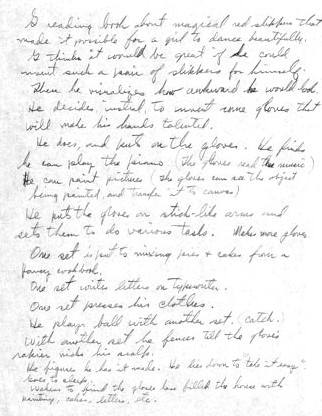 G reading book about magical red slippers that
made it possible for a girl to dance beautifully.
G thinks it would be great if he could
invent such a pair of slippers for himself.
Then he visualizes how awkward he would look.
He decides instead, to invent some gloves that
will make his hands talented.
He does, and puts on the gloves. He finds
he can play the piano (the gloves read the music)
He can paint pictures (the gloves can see the object
being painted, and transfer it to canvas)
He puts the gloves on stick-like arms and
sets them to do various tasks. Makes more gloves
One set is put to mixing pies + cakes from a
fancy cookbook.
One set writes letters on typewriter.
One set presses his clothes.
He plays ball with another set. (catch.)
With another set he fences till the gloves'
rapier nicks his scalp.
He figures he has it made. He lies down to "take it easy"
Goes to sleep.
Wakens to find the gloves have filled the house with
painting, cakes, letters, etc.